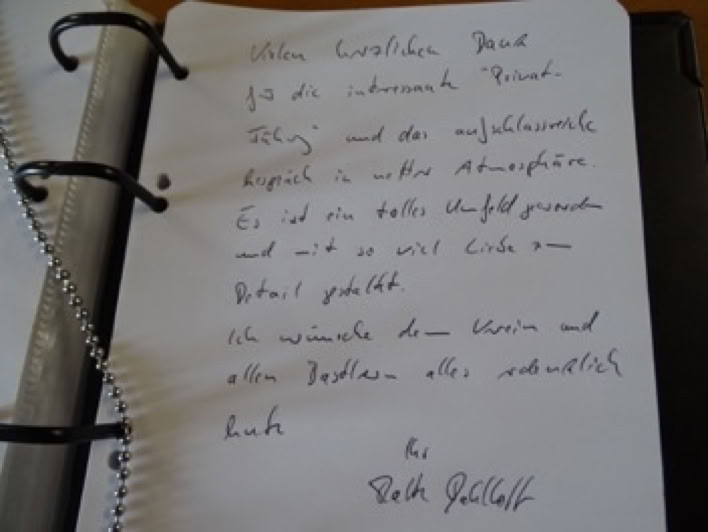 Vielen herzlichen Dank
für die interessante "Privat-
Führung" und das aufschlussreiche
Gespräch in netter Atmosphäre.
Es ist ein tolles Umfeld geworden
und mit so viel Liebe zum
Detail gestaltet.
Ich wünsche dem Verein und
allen Bastlern alles erdenklich
Gute
Ihr